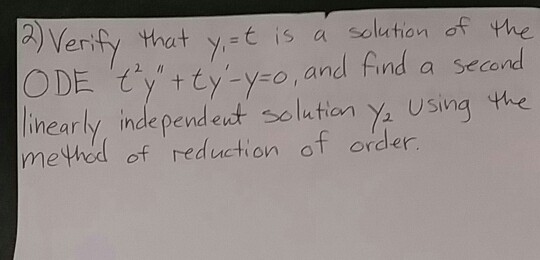 2) Verify that y₁=t is a solution of the
ODE t²y"+ty'-y=0, and find a second
linearly independent solution y₂ using the
method of reduction of order.